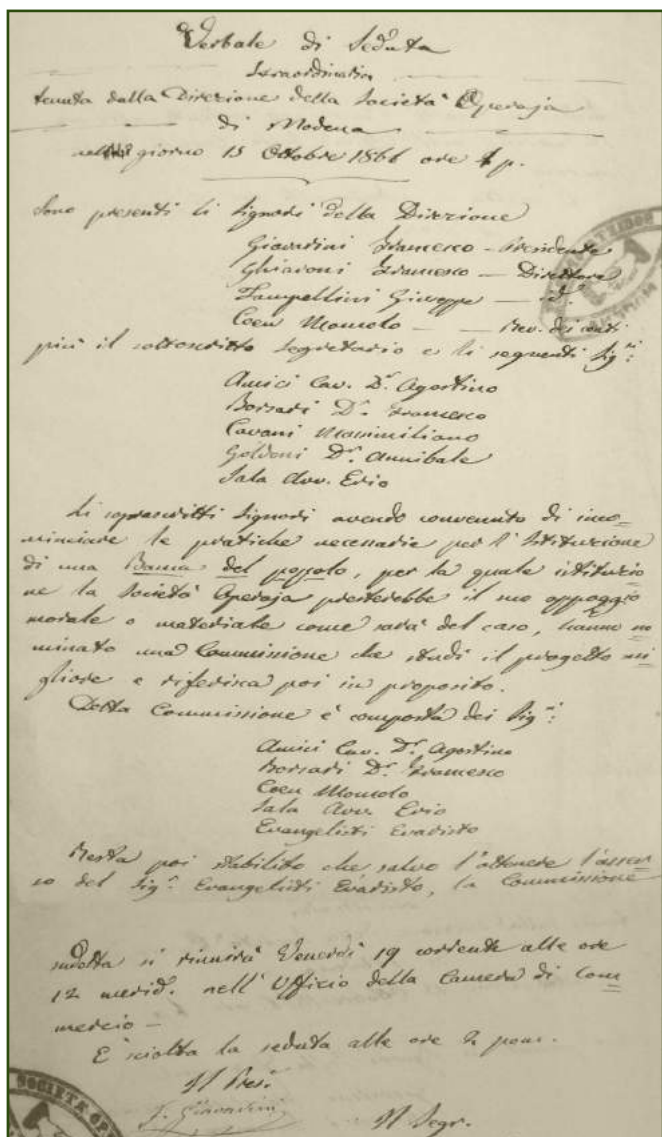 Verbale di Seduta
Straordinaria
tenuta dalla Direzione della Società Operaja
di Modena
nel giorno 15 Ottobre 1866 ore 1 p.
Sono presenti li Signori della Direzione
Giavarini Francesco - Presidente
Ghiaroni Francesco - Direttore
Zampellini Giuseppe - id.
Coen Momolo - - Rev. dei conti
più il sottoscritto Segretario e li seguenti Sig.ri:
Amici Cav. Dr. Agostino
Borsari Dr. Francesco
Cavani Massimiliano
Goldoni Dr. Annibale
Sala Avv. Erio
Li soprascritti Signori avendo convenuto di inco=
minciare le pratiche necessarie per l'Istituzione
di una Banca del popolo, per la quale istituzio=
ne la Società Operaja presterebbe il suo appoggio
morale o materiale come sarà del caso, hanno no=
minato una Commissione che studi il progetto mi=
gliore e riferisca poi in proposito.
Detta Commissione è composta dei Sig.ri:
Amici Cav. Dr. Agostino
Borsari Dr. Francesco
Coen Momolo
Sala Avv. Erio
Evangelisti Evaristo
Resta poi stabilito che, salvo l'ottenere l'assen=
so del Sig.r Evangelisti Evaristo, la Commissione
sudetta si riunirà Venerdì 19 corrente alle ore
12 merid. nell'Ufficio della Camera di Com=
mercio -
È sciolta la seduta alle ore 2 pom.
Il Pres.
F. Giavarini
Il Segr.
SOCIETÀ OPE